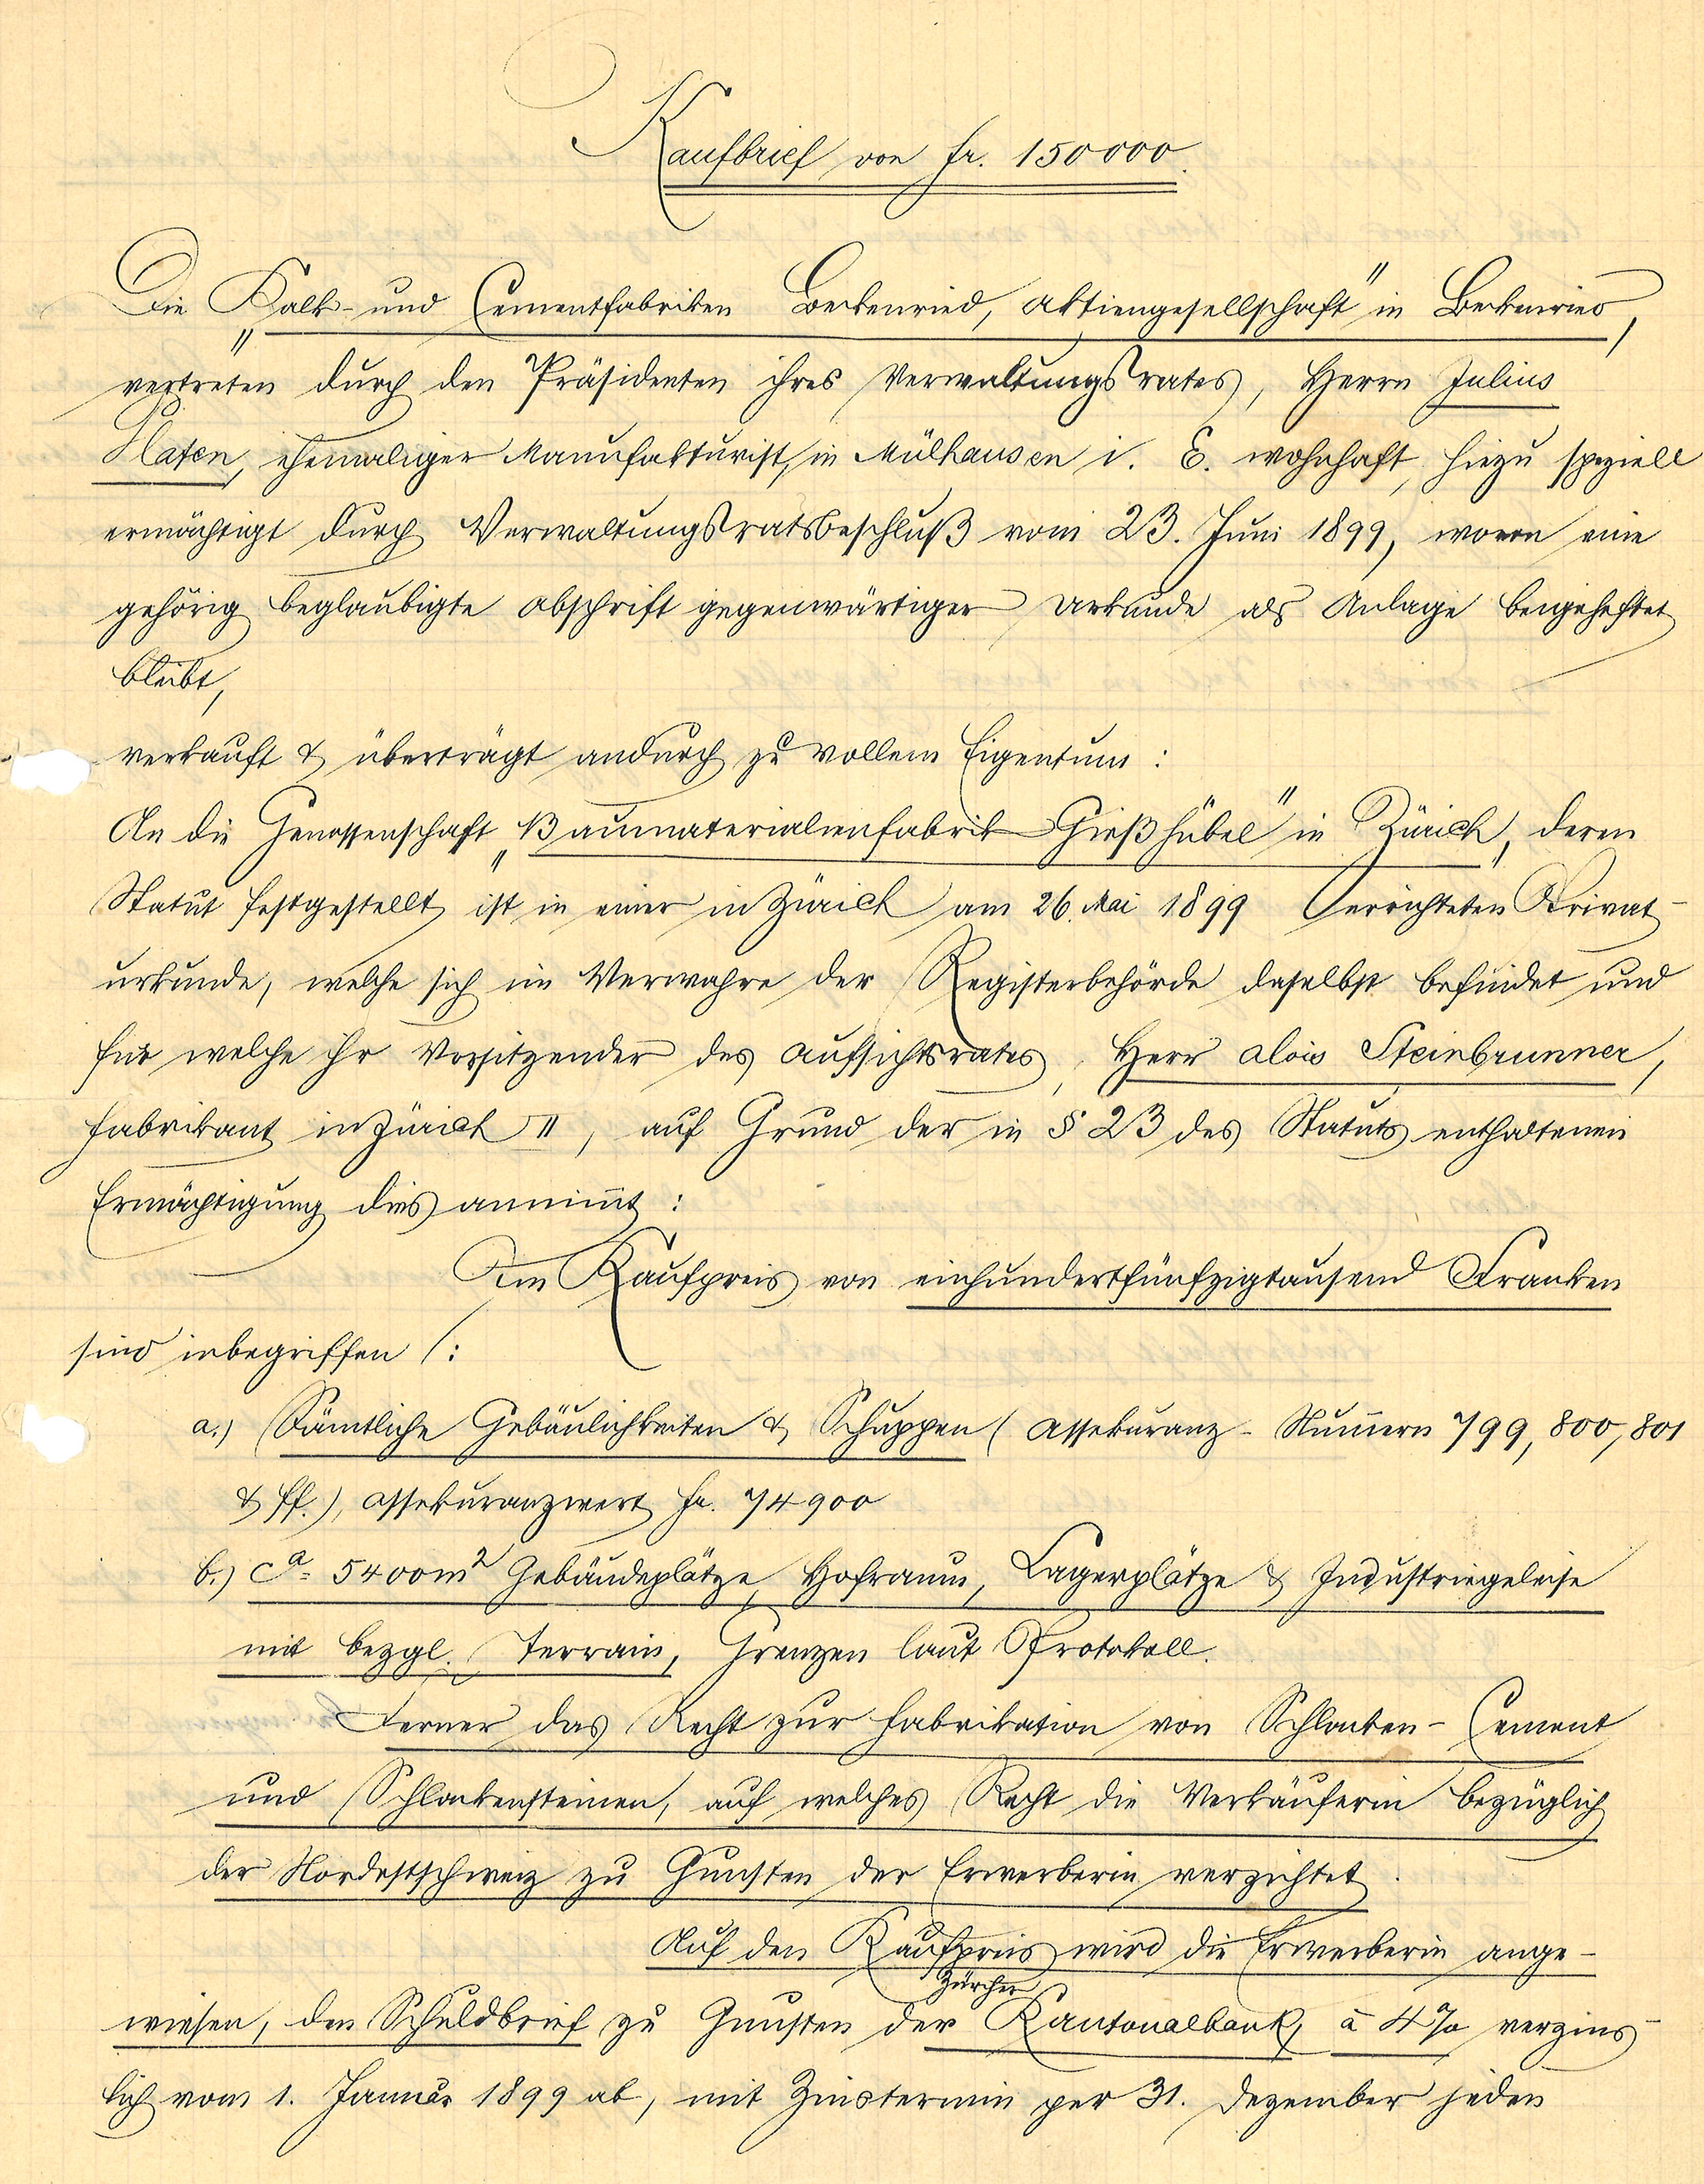 Kaufbrief von Fr. 150000.
Die „Kalk- und Cementfabriken Beckenried, Aktiengesellschaft" in Beckenried,
vertreten durch den Präsidenten ihres Verwaltungsrates, Herrn Julius
Platen, ehemaliger Manufakturist, in Mülhausen i. E. wohnhaft, hiezu speziell
ermächtigt durch Verwaltungsratsbeschluß vom 23. Juni 1899, wovon eine
gehörig beglaubigte Abschrift gegenwärtiger Urkunde als Anlage beigeheftet
bleibt,
verkauft & überträgt andurch zu vollem Eigentum:
An die Genossenschaft „Baumaterialienfabrik Gießhübel" in Zürich, deren
Statut festgestellt ist in einer in Zürich am 26. Mai 1899 errichteten Privat-
urkunde, welche sich im Verwahre der Registerbehörde daselbst befindet und
für welche ihr Vorsitzender des Aufsichtsrates, Herr Alois Steinbrunner,
Fabrikant in Zürich II, auf Grund der in § 23 des Statuts enthaltenen
Ermächtigung dies annim̄t:
Im Kaufpreis von einhundertfünfzigtausend Franken
sind inbegriffen:
a.) Sämtliche Gebäulichkeiten & Schuppen (Assekuranz-Num̄ern 799, 800, 801
& ff.), Assekuranzwert Fr. 74900
b.) ca. 5400 m² Gebäudeplätze, Hofraum, Lagerplätze & Industriegeleise
mit bezgl. Terrain, Grenzen laut Protokoll.
Ferner das Recht zur Fabrikation von Schlacken-Cement
und Schlackensteinen, auf welches Recht die Verkäuferin bezüglich
der Nordostschweiz zu Gunsten der Erwerberin verzichtet.
Auf den Kaufpreis wird die Erwerberin ange-
wiesen, den Schuldbrief zu Gunsten der Zürcher Kantonalbank, à 4% verzins-
lich vom 1. Januar 1899 ab, mit Zinstermin per 31. Dezember jeden